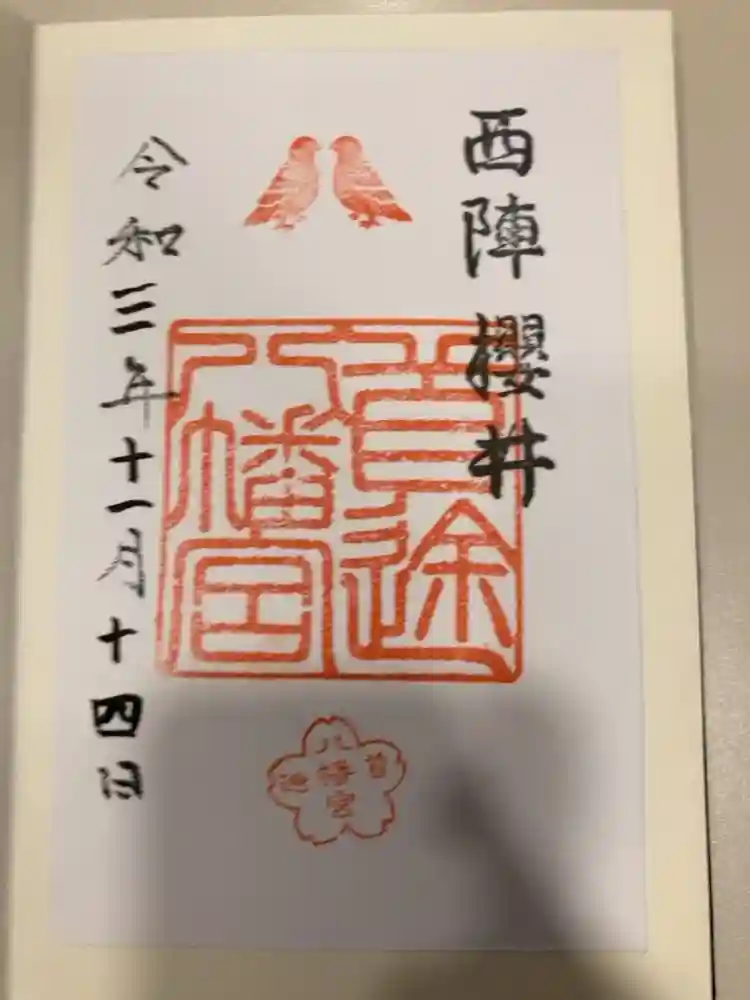 西陣櫻井
首途
八幡宮
令和三年十一月十四日
首途
八幡宮